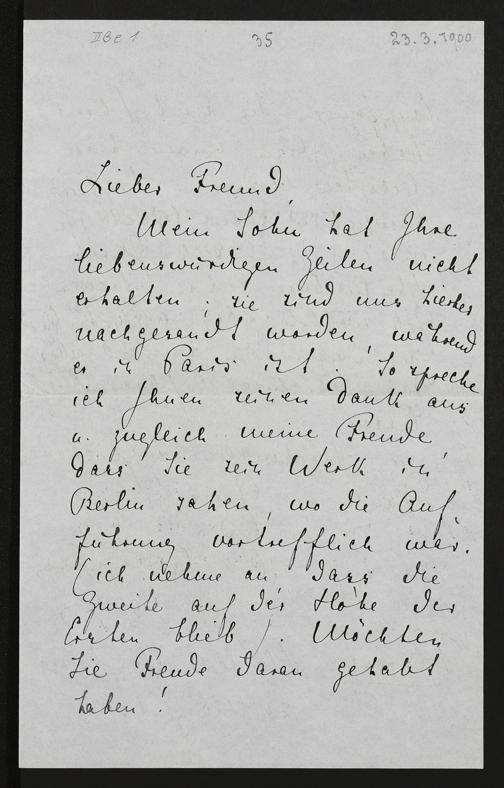 IIBe 1 35 23.3.1900
Lieber Freund,
Mein Sohn hat Ihre
liebenswürdigen Zeilen nicht
erhalten; sie sind uns hierher
nachgesandt worden, während
er in Paris ist. So spreche
ich Ihnen seinen Dank aus
u. zugleich meine Freude,
dass Sie sein Werk in
Berlin sahen, wo die Auf-
führung vortrefflich war.
(ich nehme an dass die
Zweite auf der Höhe der
Ersten blieb). Möchten
Sie Freude daran gehabt
haben!